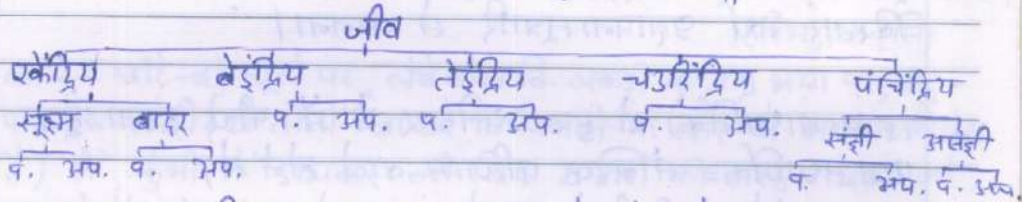 जीव
एकेंद्रिय बेइंद्रिय तेइंद्रिय चउरिंद्रिय पंचिंद्रिय
सूक्ष्म बादर प. अप. प. अप. प. अप. संज्ञी असंज्ञी
प. अप. प. अप. प. अप. प. अप.